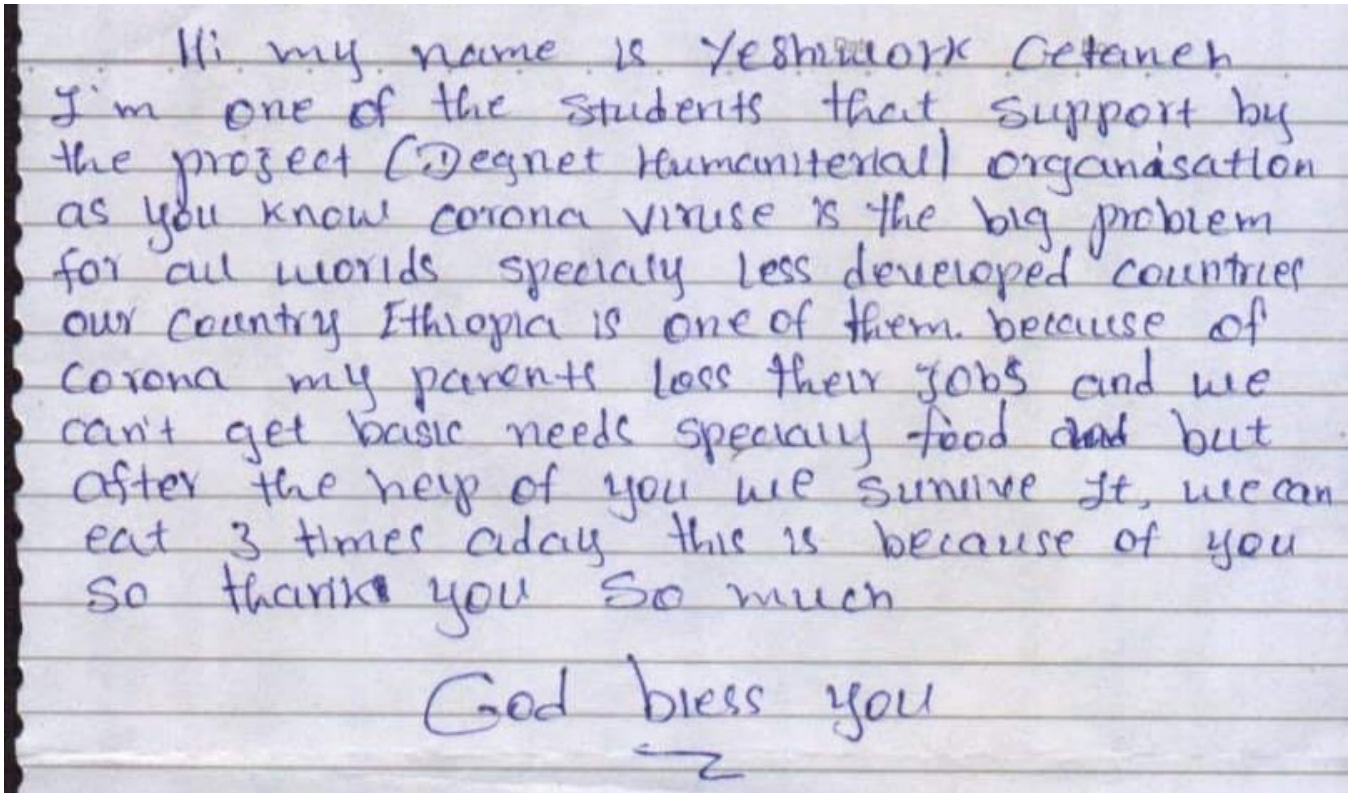 Hi my name is Yeshiwork Getaneh
I'm one of the students that support by
the project (Degnet Humaniterial) organisation
as you know corona viruse is the big problem
for all worlds specialy less developed countries
our country Ethiopia is one of them. because of
corona my parents loss their jobs and we
can't get basic needs specialy food and but
after the help of you we survive It, we can
eat 3 times aday this is because of you
so thank you so much
God bless you